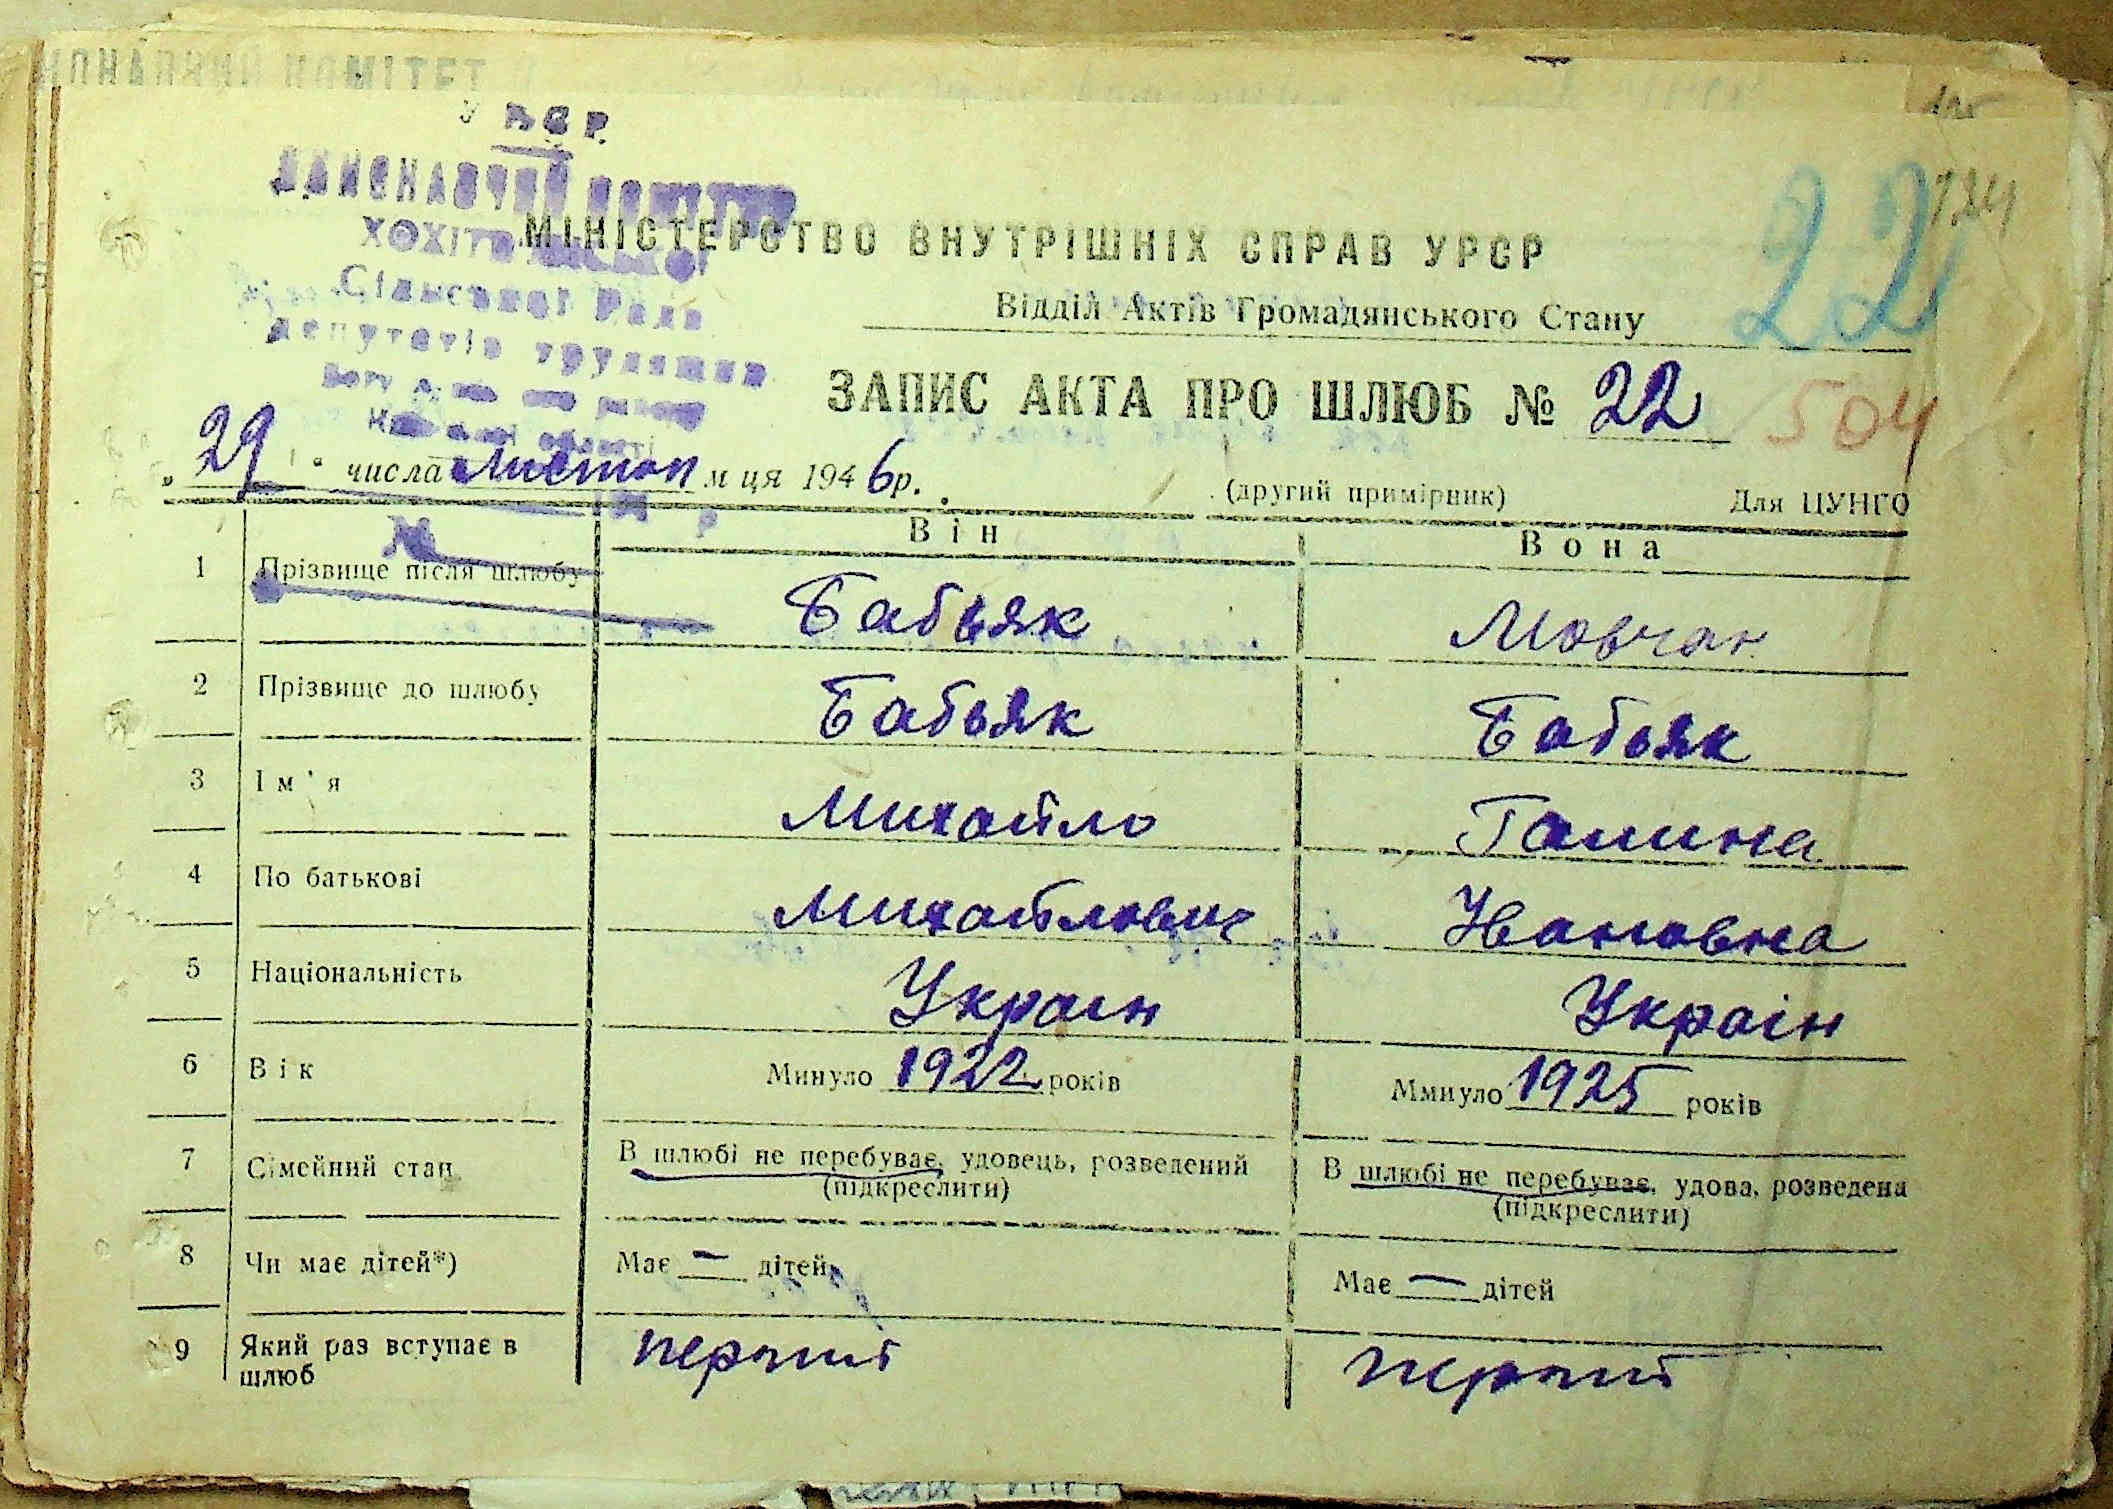 УРСР
ВИКОНАВЧИЙ КОМІТЕТ
Сільської Ради
депутатів трудящих
області
22
МІНІСТЕРСТВО ВНУТРІШНІХ СПРАВ УРСР
Відділ Актів Громадянського Стану
ЗАПИС АКТА ПРО ШЛЮБ № 22 504
„ 29 " числа листоп м ця 1946р.
(другий примірник) Для ЦУНГО
Він Вона
1 Прізвище після шлюбу Бабьяк Мовчан
2 Прізвище до шлюбу Бабьяк Бабьяк
3 Ім'я Михайло Галина
4 По батькові Михайлович Ивановна
5 Національність Украін Украін
6 Вік Минуло 1922 років Ммнуло 1925 років
7 Сімейний стан В шлюбі не перебуває, удовець, розведений (підкреслити) В шлюбі не перебуває, удова, розведена (підкреслити)
8 Чи має дітей*) Має — дітей Має — дітей
9 Який раз вступає в шлюб перший перший